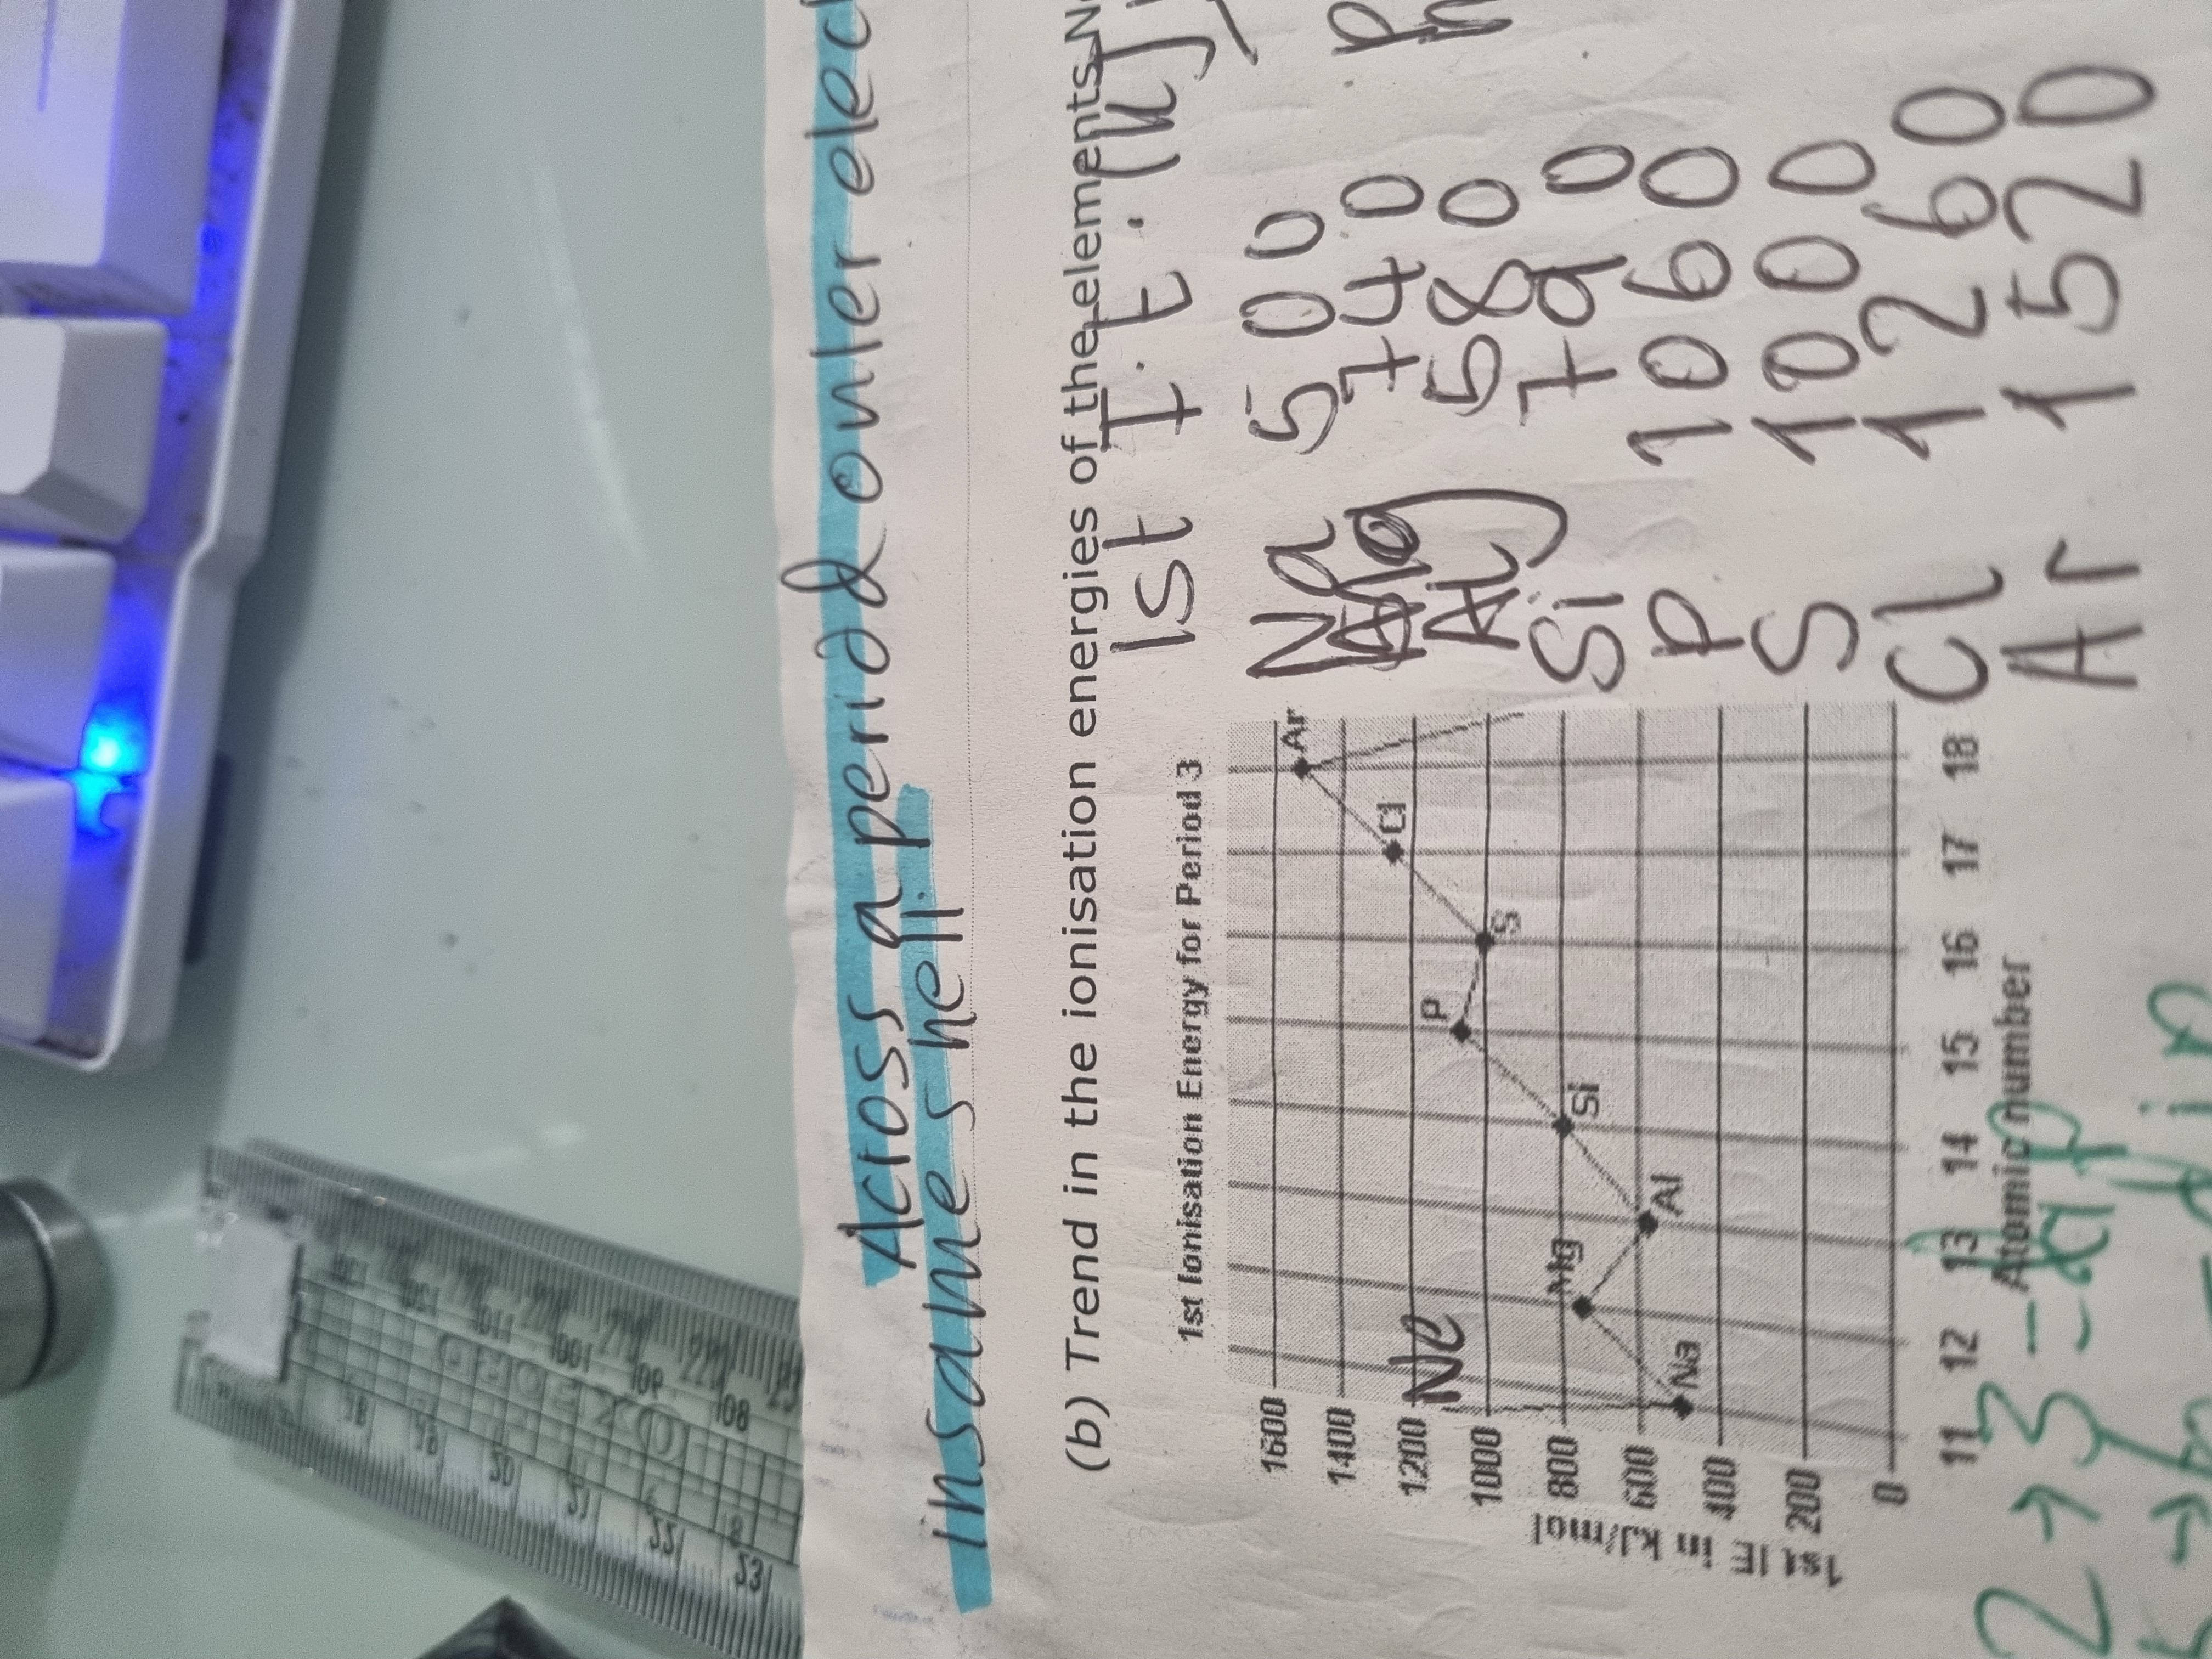 Across a period outer elec
in same shell.
(b) Trend in the ionisation energies of the elements N
1st I.E. (kJ
1st Ionisation Energy for Period 3
1600
1400
1200
1000
800
600
400
200
0
1st IE in kJ/mol
Ne
Na
Mg
Al
Si
P
S
Cl
Ar
11 12 13 14 15 16 17 18
Atomic number
Na 500
Mg 740
Al 580
Si 790
P 1060
S 1000
Cl 1260
Ar 1520
2 → 3
18
19
20
21
22
23
108